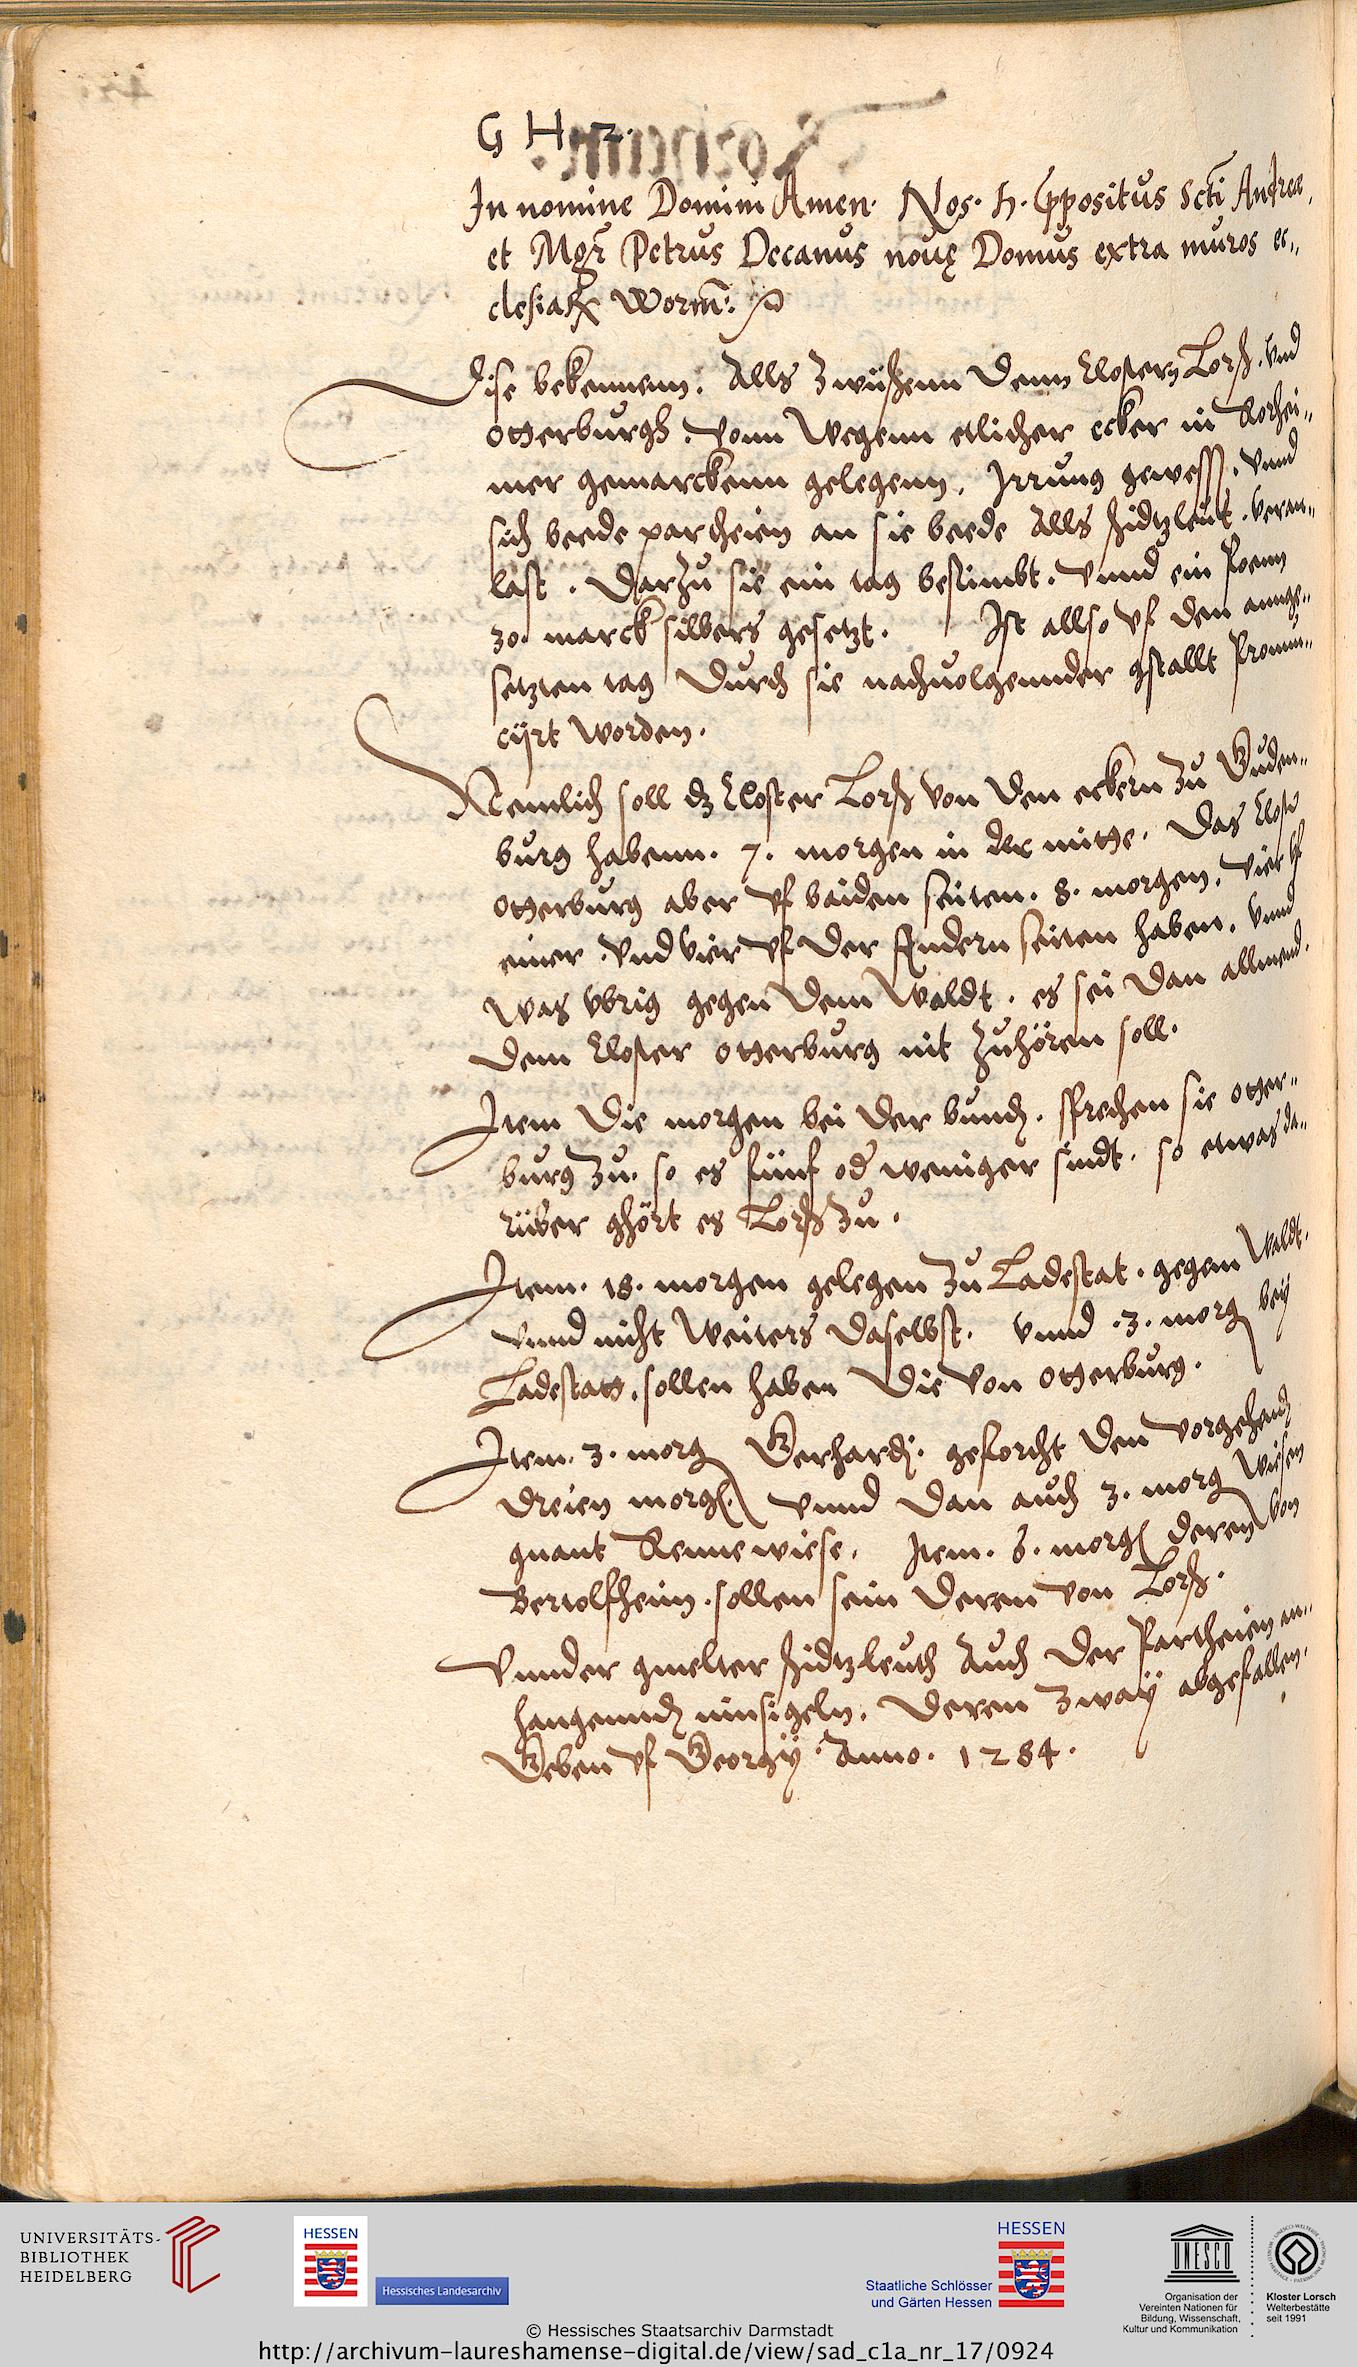 G H 2.
In nomine Domini Amen. Nos. H. ppositus Scti Andreae,
et Mgr Petrus Decanus nouę Domus extra muros ec„
clesiarx Worm:
Dise bekennenn. Alls zwüschenn denn Closterņ Lorß. vnd
Otterburgh. vonn wegenn etlicher ecker in Rorhei„
mer gemarckenn gelegenn, Irrung gewesß. vnnd
sich beede partheien an sie beede Alls schidtzleut. veran„
last. Darzu sie ein tag bestimbt. vnnd ein Poenn
30. marck silbers gesetzt. Ist allso vf den annge„
setzten tag durch sie nachuolgennder gstallt Pronun„
cÿrt worden.
Nemlich soll dz Closter Lorß von den eckern zu Buden„
burg habenn. 7. morgen in der mitte. Das Closter
Otterburg aber vf baiden seiten. 8. morgen, vier vf
einer vnd vier vf der Andern seiten haben, vnnd
was vbrig gegen dem Waldt. es sei dan allmend.
dem Closter Otterburg nit zuhören soll.
Item die morgen bei der bünd. sprechen sie Otter„
burg zu. so es fünf od weniger sindt. so etwas da„
rüber ghört es Lorß zu.
Item. 18. morgen gelegen zu Ladestat. gegem Waldt.
vnnd nicht weiters daselbst. vnnd .3. morg bey
Ladestatt. sollen haben die von Otterburg.
Item. 3. morg Gerhardj. geforcht den vorgehend
dreien morg. vnnd dan auch 3. morg wiesen
gnant Rennewiese. Item. 8. morg deren von
Bertolfheim. sollen sein deren von Lorß.
Vnnder gmelter schidtzleuth Auch der Partheien an„
hangennd innsigeln. deren zwaÿ abgefallen.
Geben vf Georgÿ Anno. 1284.
UNIVERSITÄTS-
BIBLIOTHEK
HEIDELBERG
HESSEN
Hessisches Landesarchiv
HESSEN
Staatliche Schlösser
und Gärten Hessen
UNESCO
Organisation der
Vereinten Nationen für
Bildung, Wissenschaft,
Kultur und Kommunikation
Kloster Lorsch
Welterbestätte
seit 1991
© Hessisches Staatsarchiv Darmstadt
http://archivum-laureshamense-digital.de/view/sad_c1a_nr_17/0924